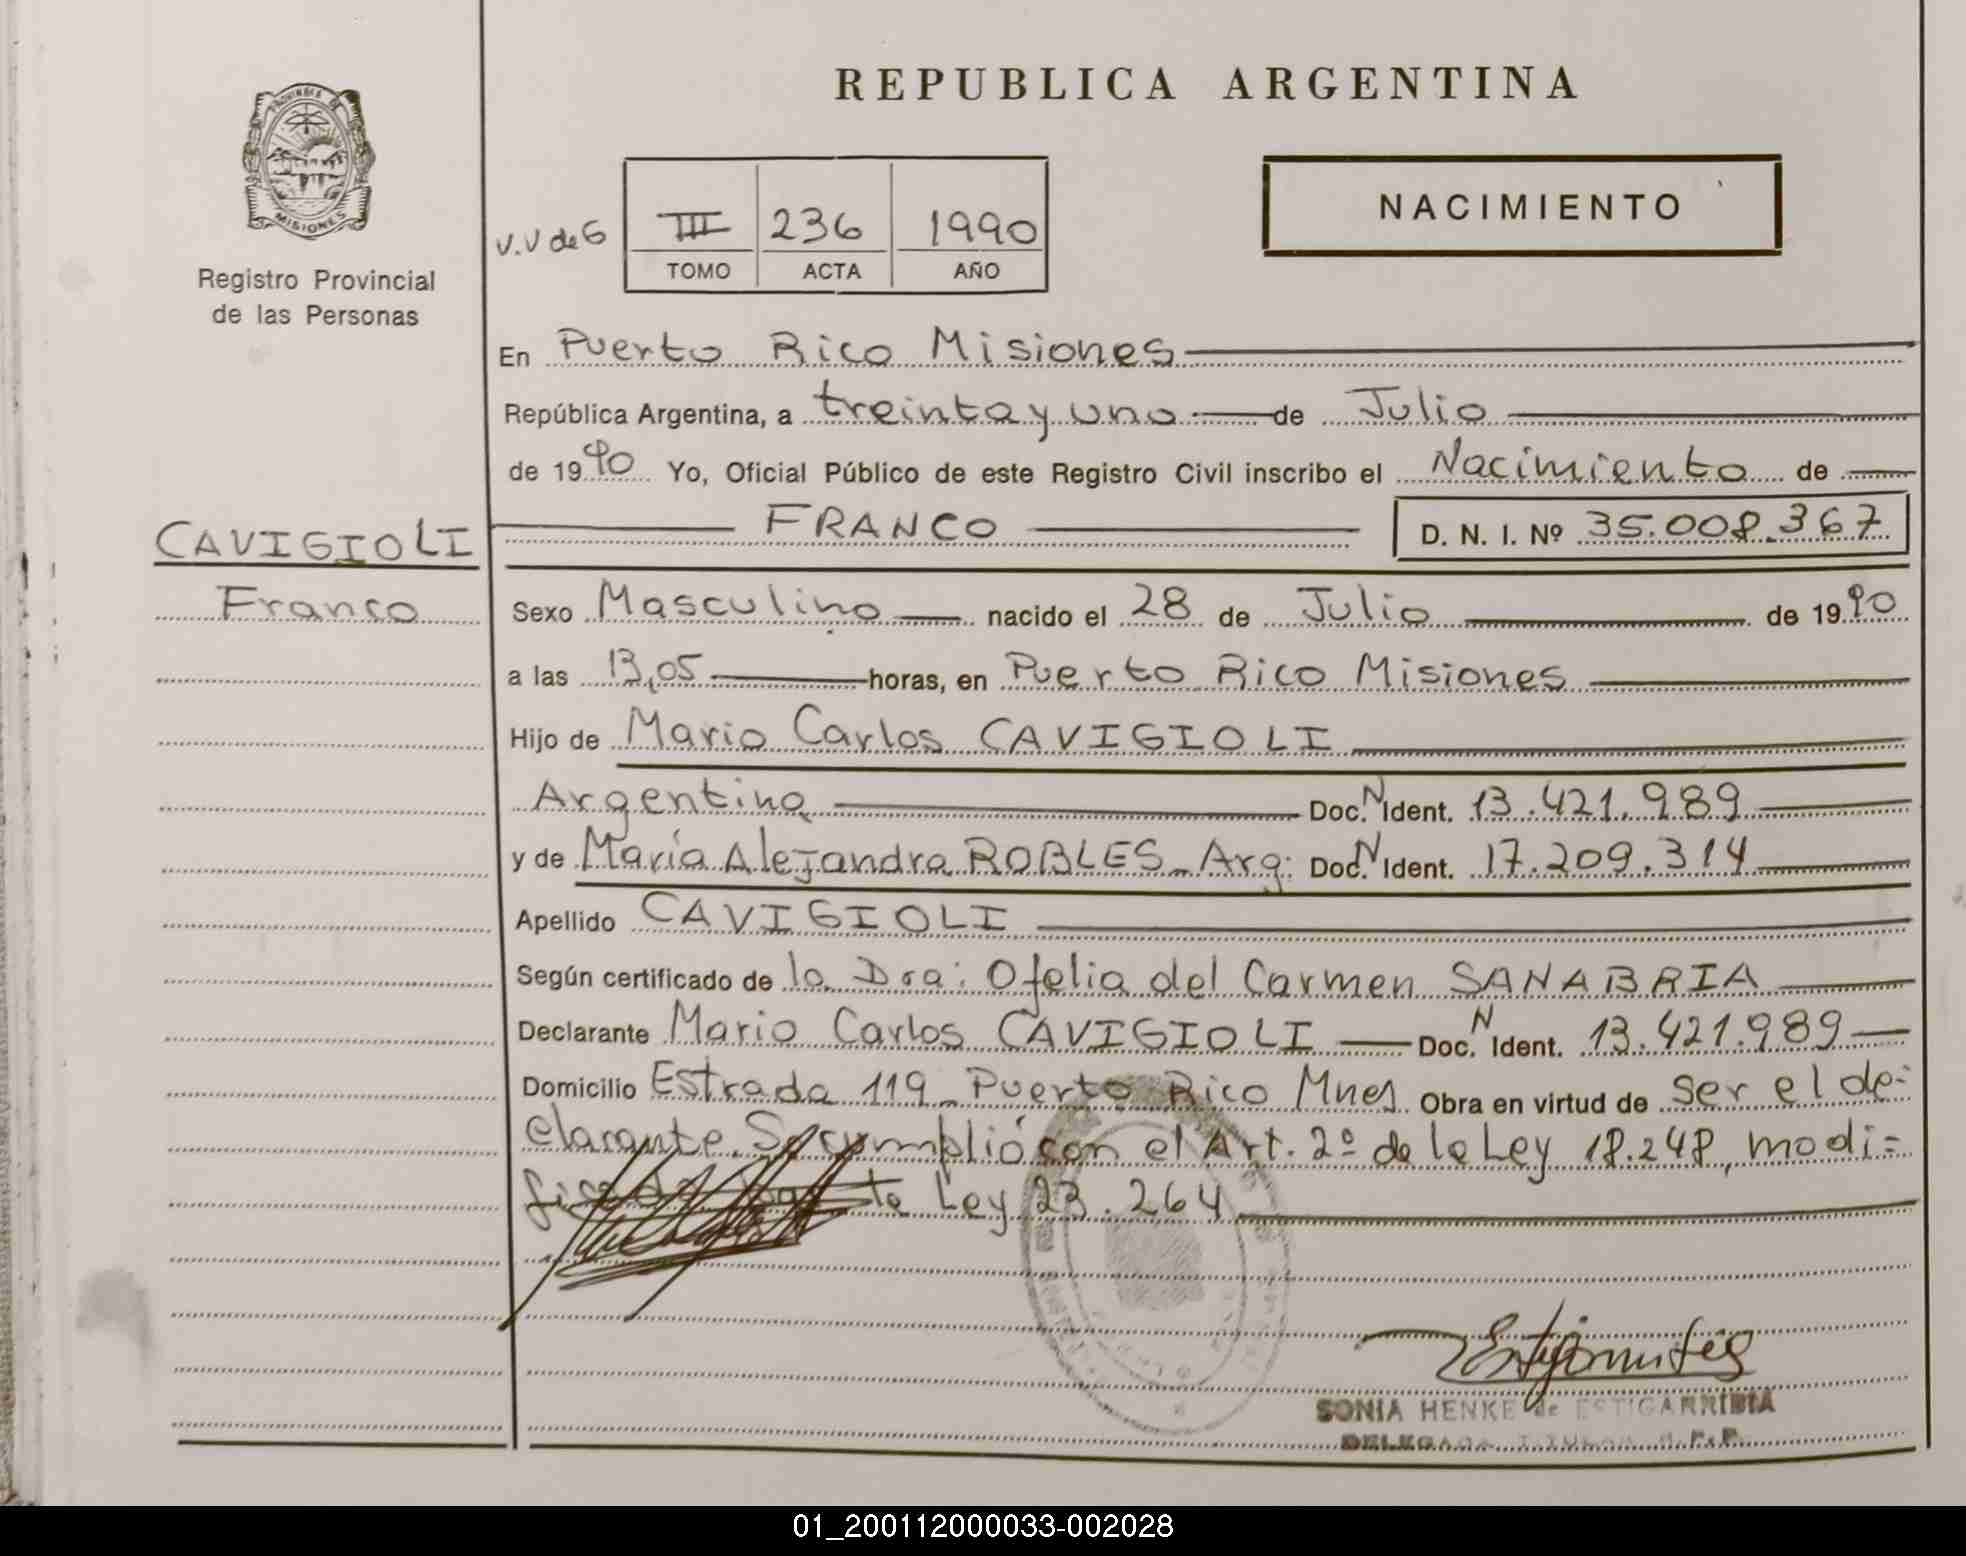 REPUBLICA ARGENTINA
PROVINCIA DE
MISIONES
Registro Provincial
de las Personas
NACIMIENTO
V.V de G
III 236 1990
TOMO ACTA AÑO
En Puerto Rico Misiones
República Argentina, a treinta y uno de Julio
de 1990 Yo, Oficial Público de este Registro Civil inscribo el Nacimiento de
FRANCO D. N. I. Nº 35.008.367
CAVIGIOLI
Franco
Sexo Masculino nacido el 28 de Julio de 1990
a las 13,05 horas, en Puerto Rico Misiones
Hijo de Mario Carlos CAVIGIOLI
Argentino Doc. N Ident. 13.421.989
y de María Alejandra ROBLES - Arg. Doc. N Ident. 17.209.314
Apellido CAVIGIOLI
Según certificado de la Dra: Ofelia del Carmen SANABRIA
Declarante Mario Carlos CAVIGIOLI Doc. N Ident. 13.421.989
Domicilio Estrada 119 - Puerto Rico Mnes Obra en virtud de ser el de-
clarante. Se cumplió con el Art. 2º de la Ley 18.248, modi=
Ley 23.264
SONIA HENKE de ESTIGARRIBIA
DELEGADA TITULAR R.P.P.
01_200112000033-002028